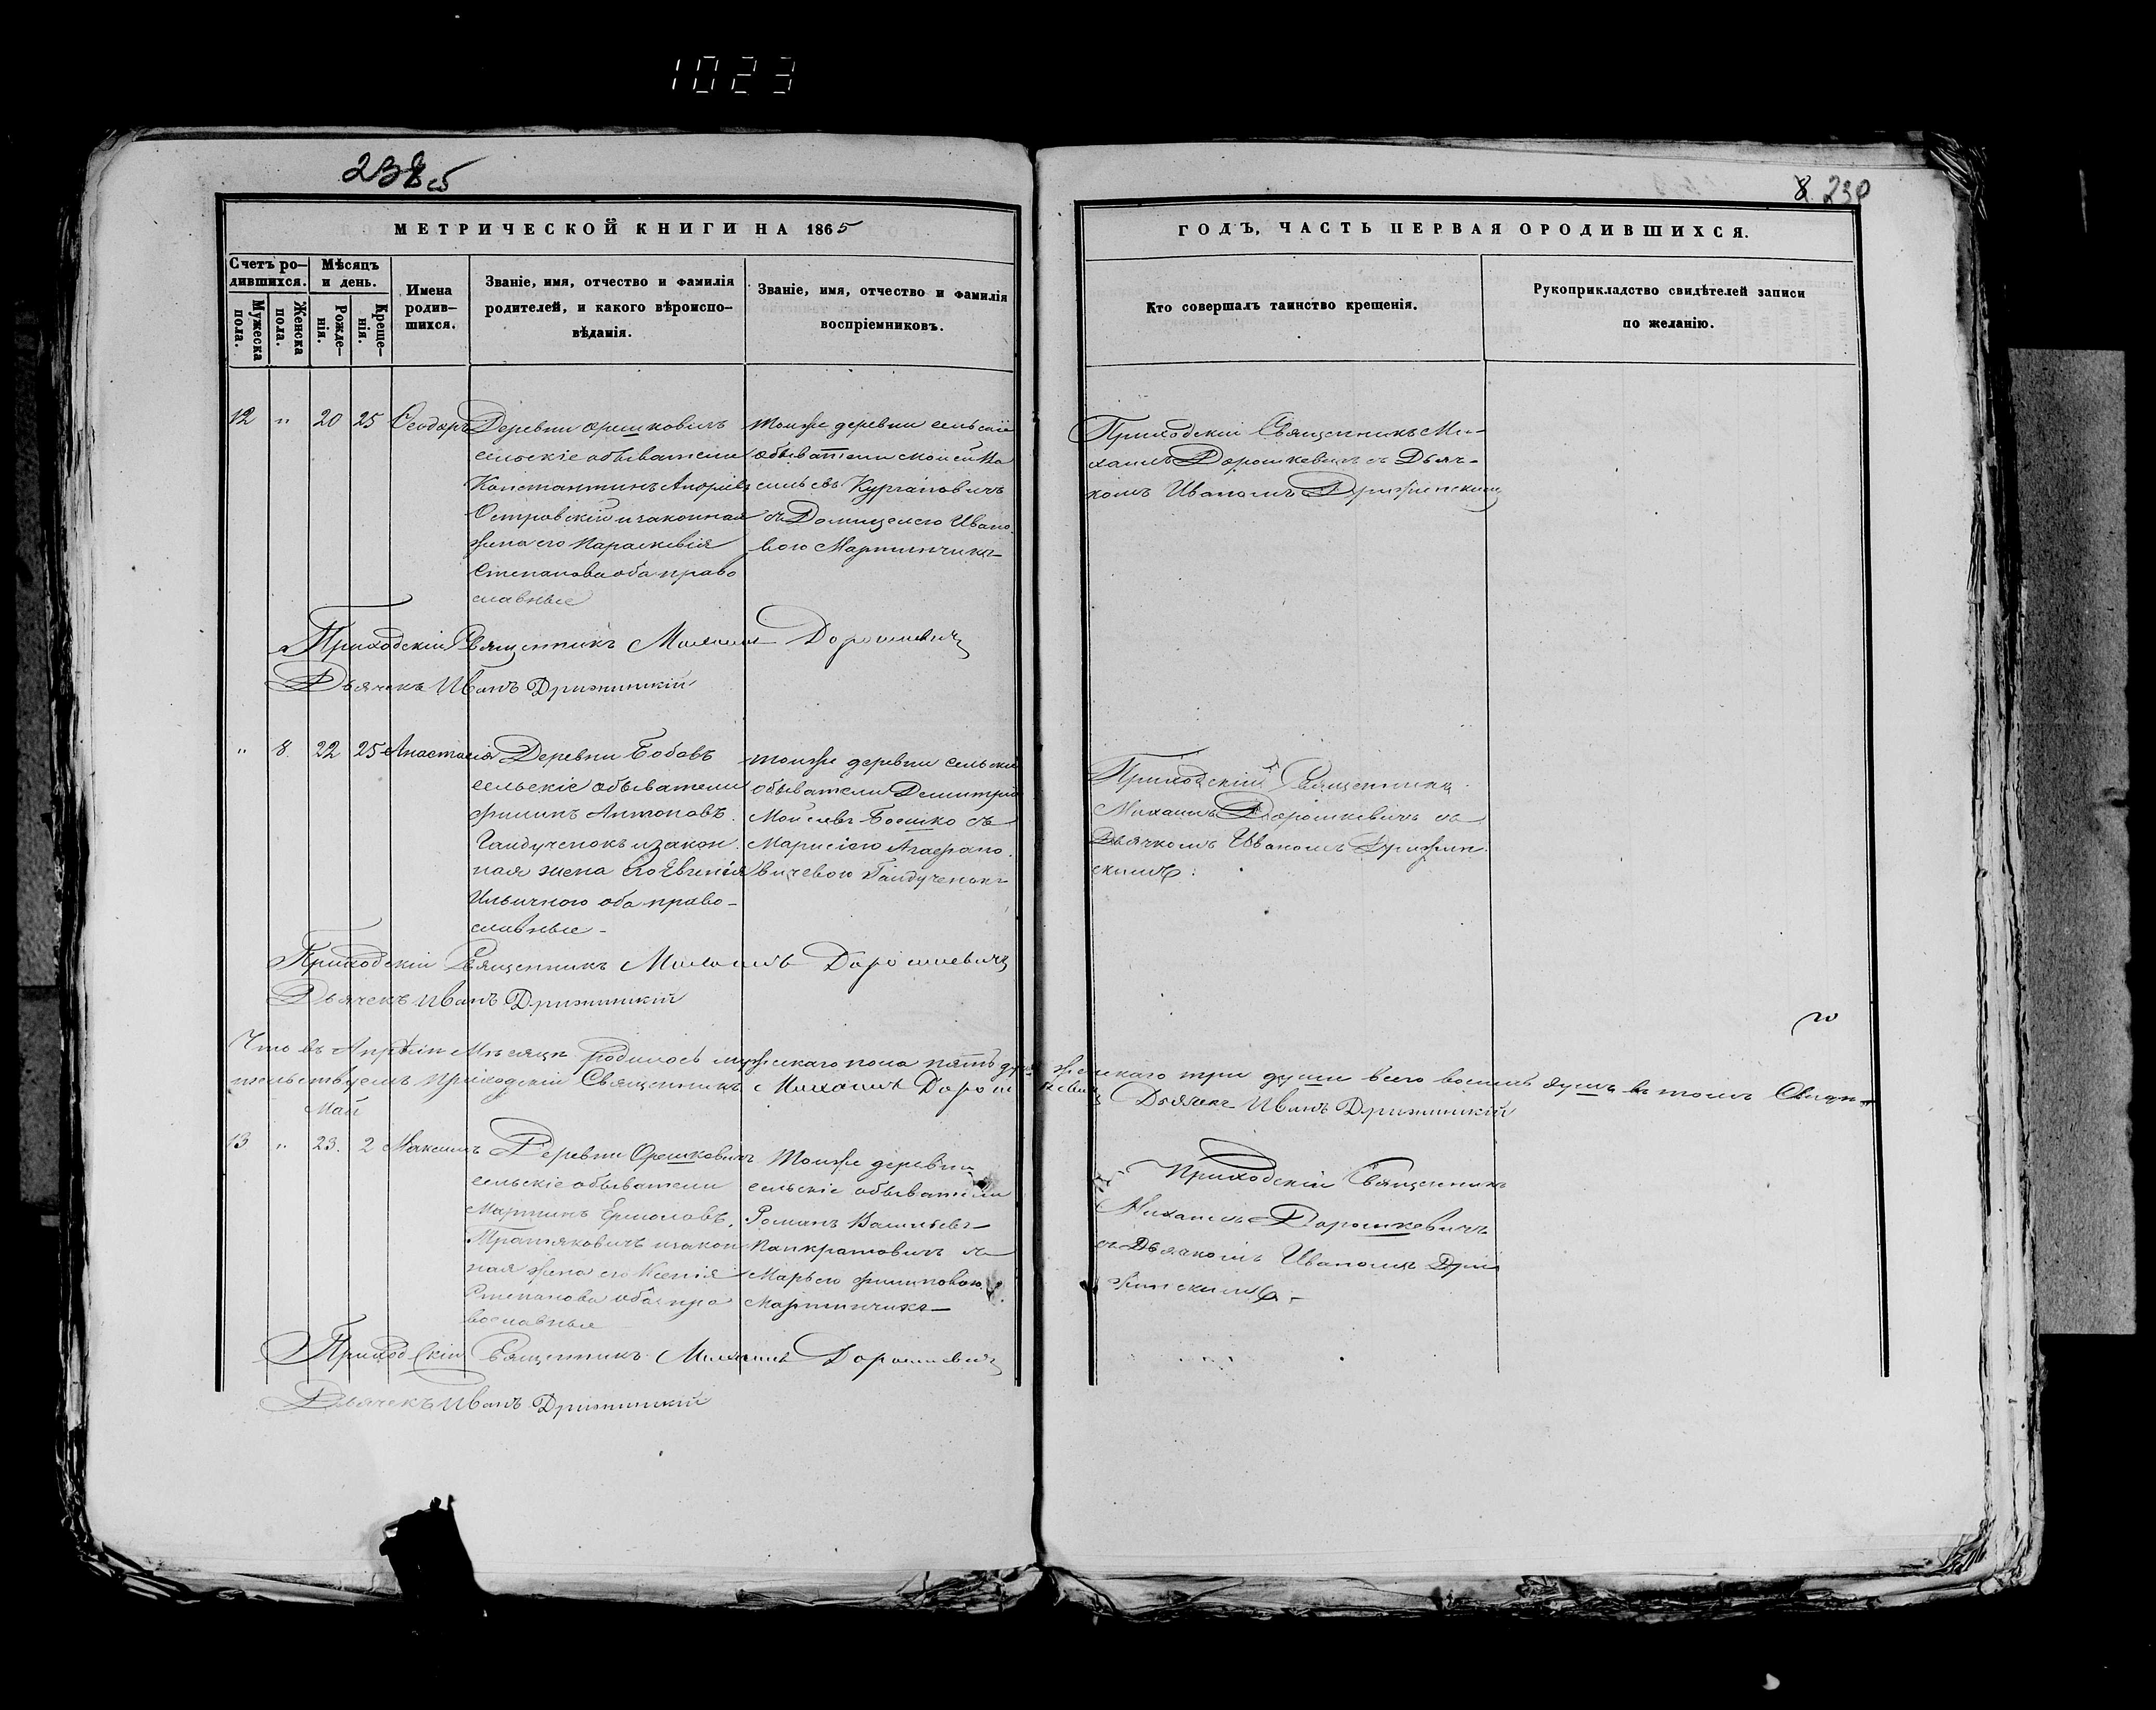 1023
2385
8 230
МЕТРИЧЕСКОЙ КНИГИ НА 1865
Счетъ ро-
дившихся.
Мѣсяцъ
и день.
Мужеска
пола.
Женска
пола.
Рожде-
нія.
Креще-
нія.
Имена
родив-
шихся.
Званіе, имя, отчество и фамилія
родителей, и какого вѣроиспо-
вѣданія.
Званіе, имя, отчество и фамилія
воспріемниковъ.
ГОДЪ, ЧАСТЬ ПЕРВАЯ ОРОДИВШИХСЯ.
Кто совершалъ таинство крещенія.
Рукоприкладство свидѣтелей записи
по желанію.
12 " 20 25 Ѳеодоръ
Деревни Орешковичъ
сельскіе обыватели
Константинъ
Островскій и законная
жена его Параскевія
Степанова оба право
славные
Тойже деревни сельскіе
обыватели Моисей Ва
сильевъ Кургановичъ
съ Домицелею Ивано
вою Мартинчикъ
Приходскій Священникъ Ми-
хаилъ Дорошкевичъ съ Дьяч-
комъ Иваномъ Дрижинскимъ
Приходскій Священникъ Михаилъ Дорошкевичъ
Дьячекъ Иванъ Дрижинскій
" 8 22 25 Анастасія
Деревни Бобовъ
сельскіе обыватели
Филипъ Антоновъ
Гайдученокъ и закон
ная жена его Евгенія
Ильичного оба право-
славные
Тойже деревни сельскіе
обыватели Демитрій
Мойсеевъ Боешко съ
Гайдученокъ
Приходскій Священникъ
Михаилъ Дорошкевичъ съ
Дьячкомъ Иваномъ Дрижин
скимъ.
Приходскій Священникъ Михаилъ Дорошкевичъ
Дьячекъ Иванъ Дрижинскій
Что въ Апрѣлѣ Мѣсяцѣ родилось мужскаго пола пять душъ женскаго три души всего восемь душъ въ томъ Свидѣ-
тельствуемъ Приходскій Священникъ Михаилъ Дорошкевичъ Дьячекъ Иванъ Дрижинскій
Май
13 " 23. 2 Максимъ
Деревни Орешковичъ
сельскіе обыватели
Мартинъ Ермоловъ
и закон
ная жена его Ксенія
Степанова оба пра
вославные
Тойже деревни
сельскіе обыватели
Романъ Васильевъ
Панкратовичъ съ
Марьею Филиповою
Мартинчикъ
Приходскій Священникъ
Михаилъ Дорошкевичъ
съ Дьячкомъ Иваномъ Дри
жинскимъ
Приходскій Священникъ Михаилъ Дорошкевичъ
Дьячекъ Иванъ Дрижинскій